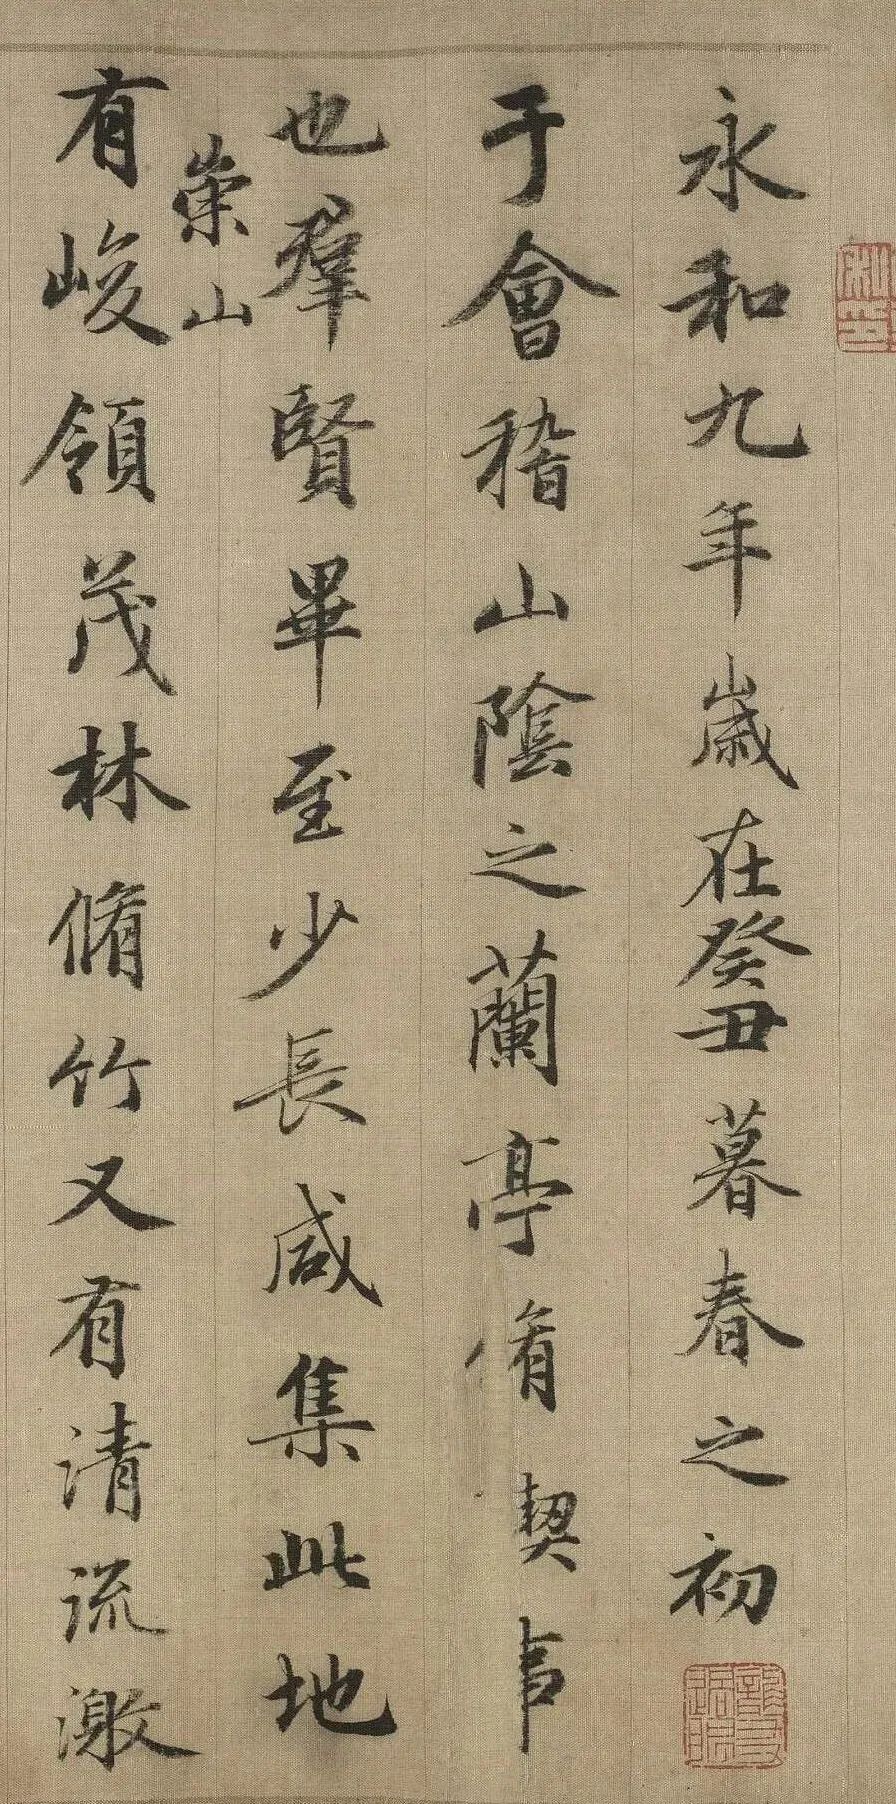 永和九年歲在癸丑暮春之初
于會稽山陰之蘭亭脩契事
也羣賢畢至少長咸集此地
崇山
有峻領茂林脩竹又有清流激